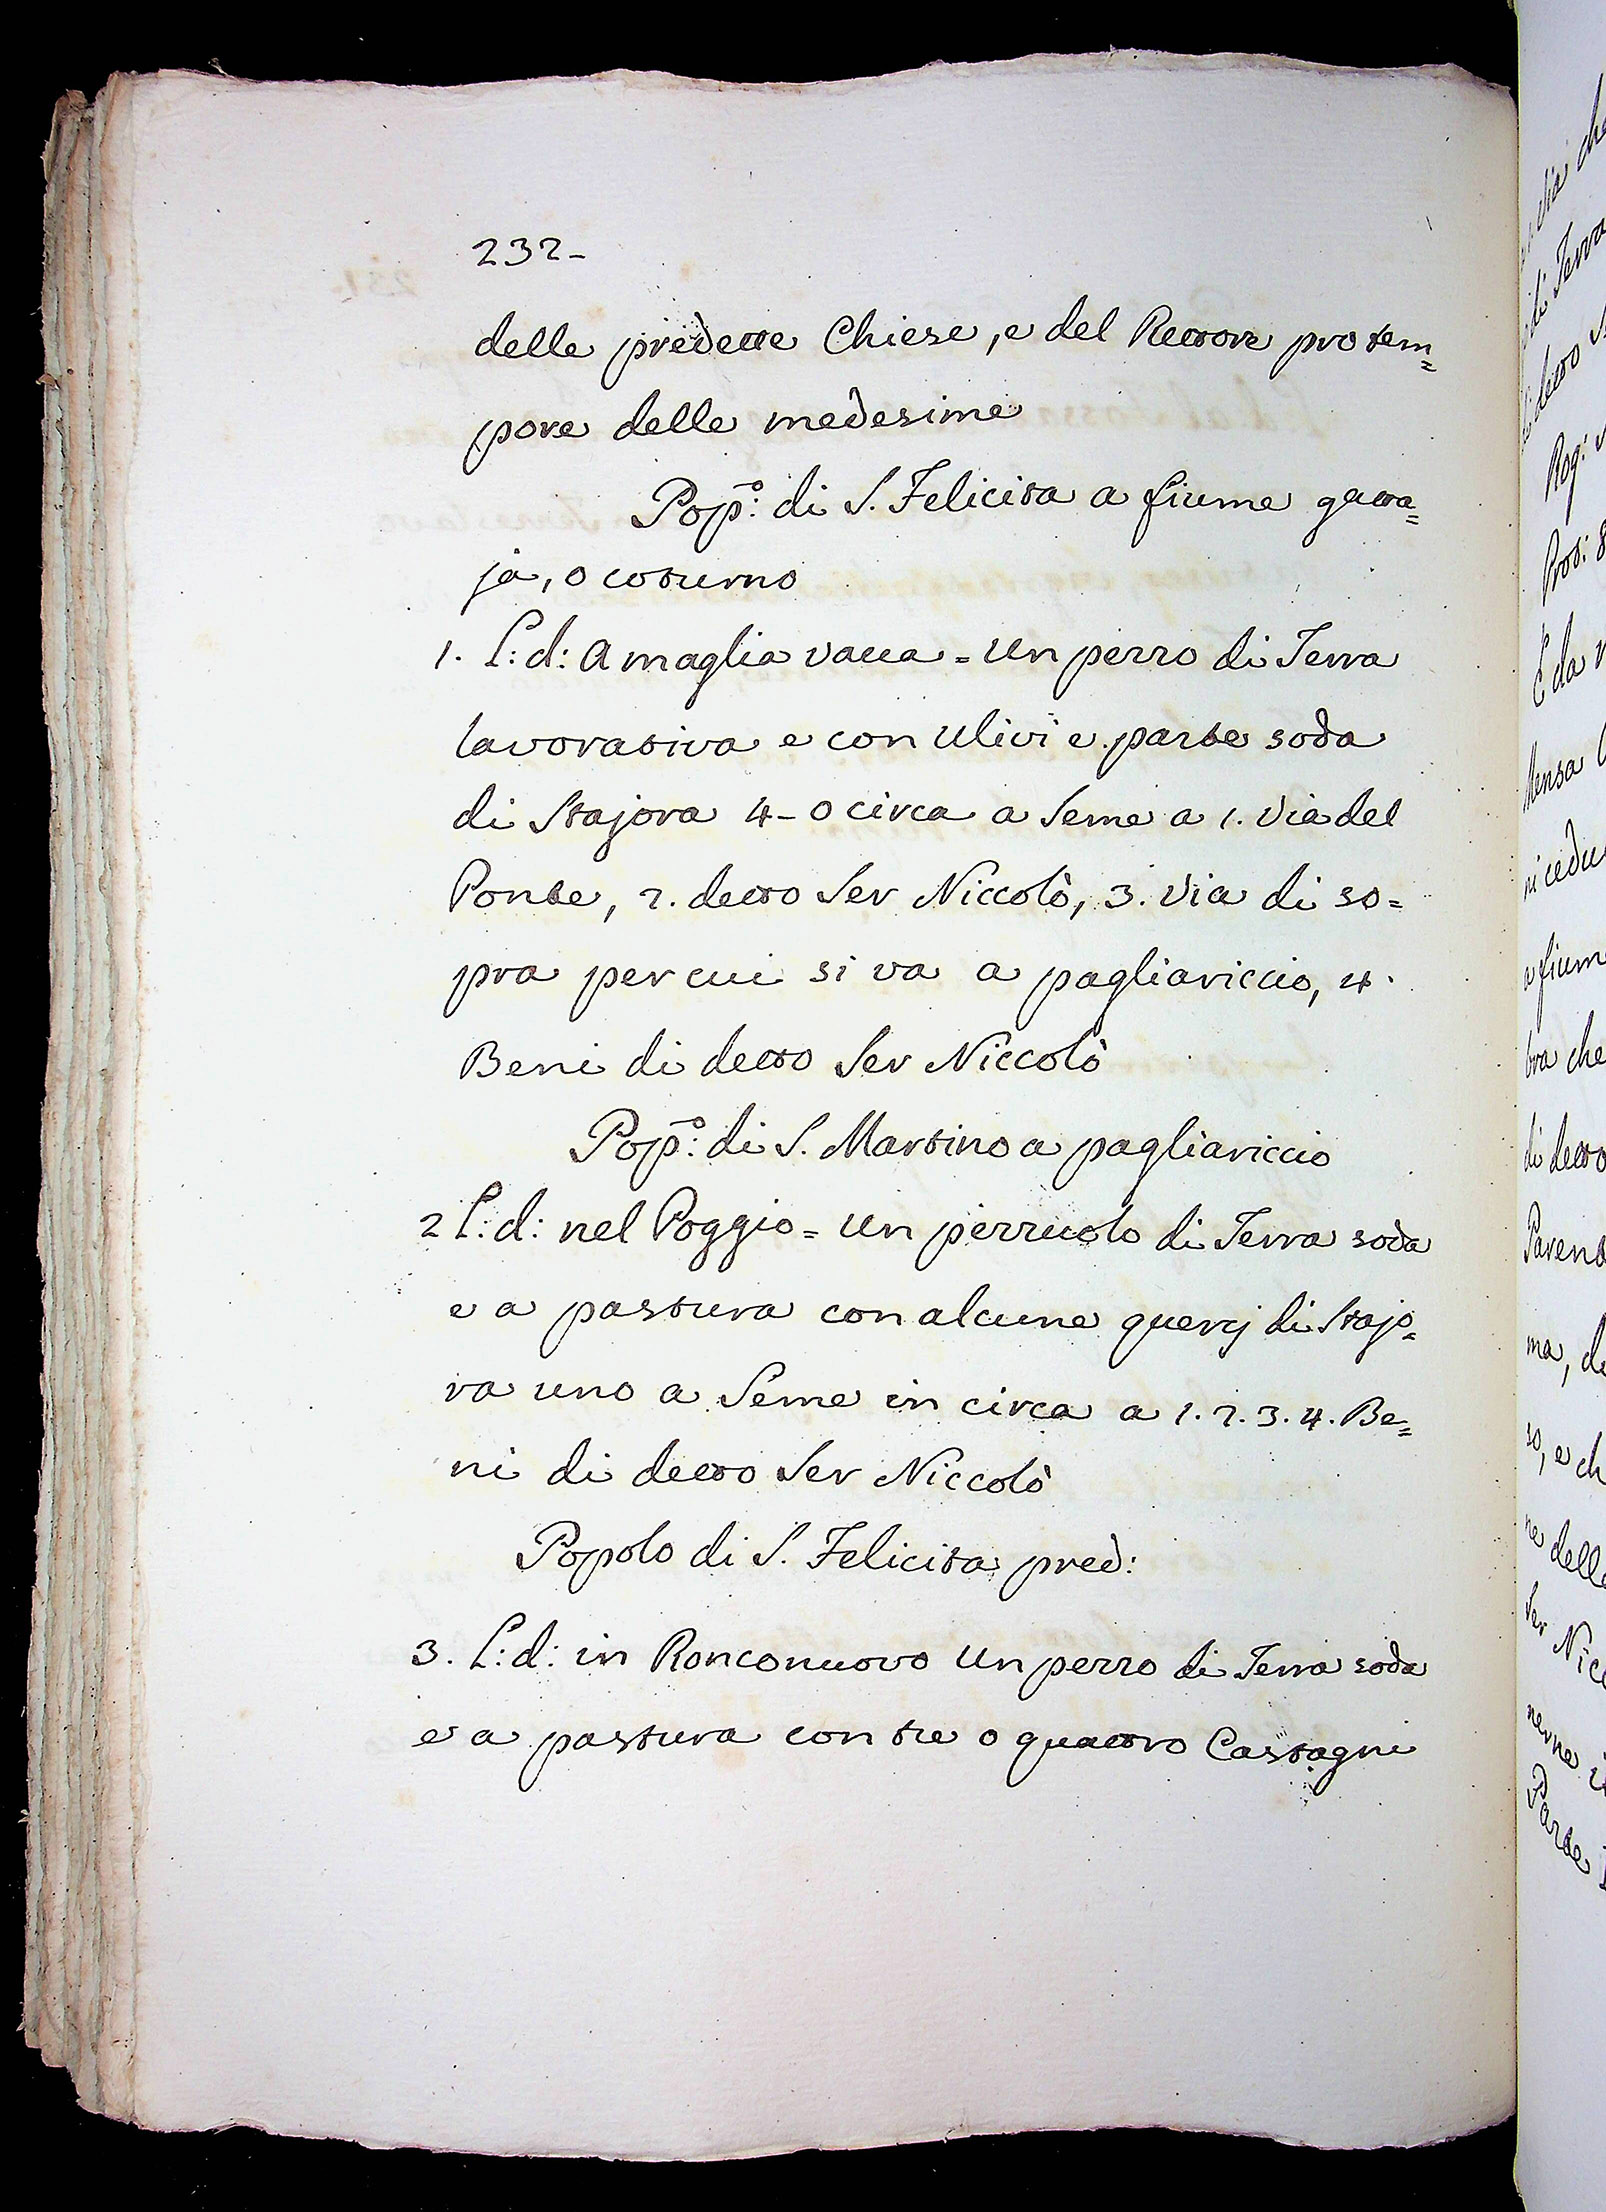 232-
delle predette Chiese, e del Rettore pro tem=
pore delle medesime
Pop:º di S. Felicita a fiume gatta=
ja, o coturno
1. L: d: A maglia vacca = Un pezzo di Terra
lavorativa e con Ulivi e parte soda
di Stajora 4-0 circa a Seme a 1. Via del
Ponte, 2. detto Ser Niccolò, 3. Via di so=
pra per cui si va a pagliariccio, 4.
Beni di detto Ser Niccolò
Pop:º di S. Martino a pagliariccio
2 L: d: nel Poggio = Un pezzuolo di Terra soda
e a pastura con alcune quercj di Stajo=
ra uno a Seme in circa a 1. 2. 3. 4. Be=
ni di detto Ser Niccolò
Popolo di S. Felicita pred:
3. L: d: in Ronconuovo Un pezzo di Terra soda
e a pastura con tre o quattro Castagni
di Terra
detto
Rog:
E da
Mensa
a fium
che
di detto
ma, d
so, e ch
ne dell
Ser Nic
Parte